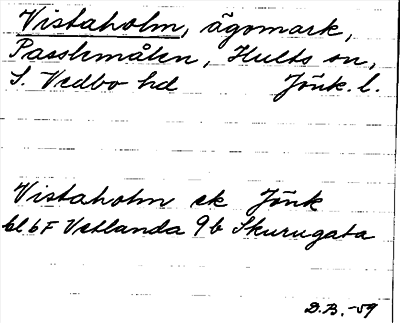 Vistaholm, ägomark,
Passlemålen, Hults sn,
S. Vedbo hd Jönk. l.
Vistaholm ek Jönk
bl 6F Vetlanda 9b Skurugata
D.B. -59